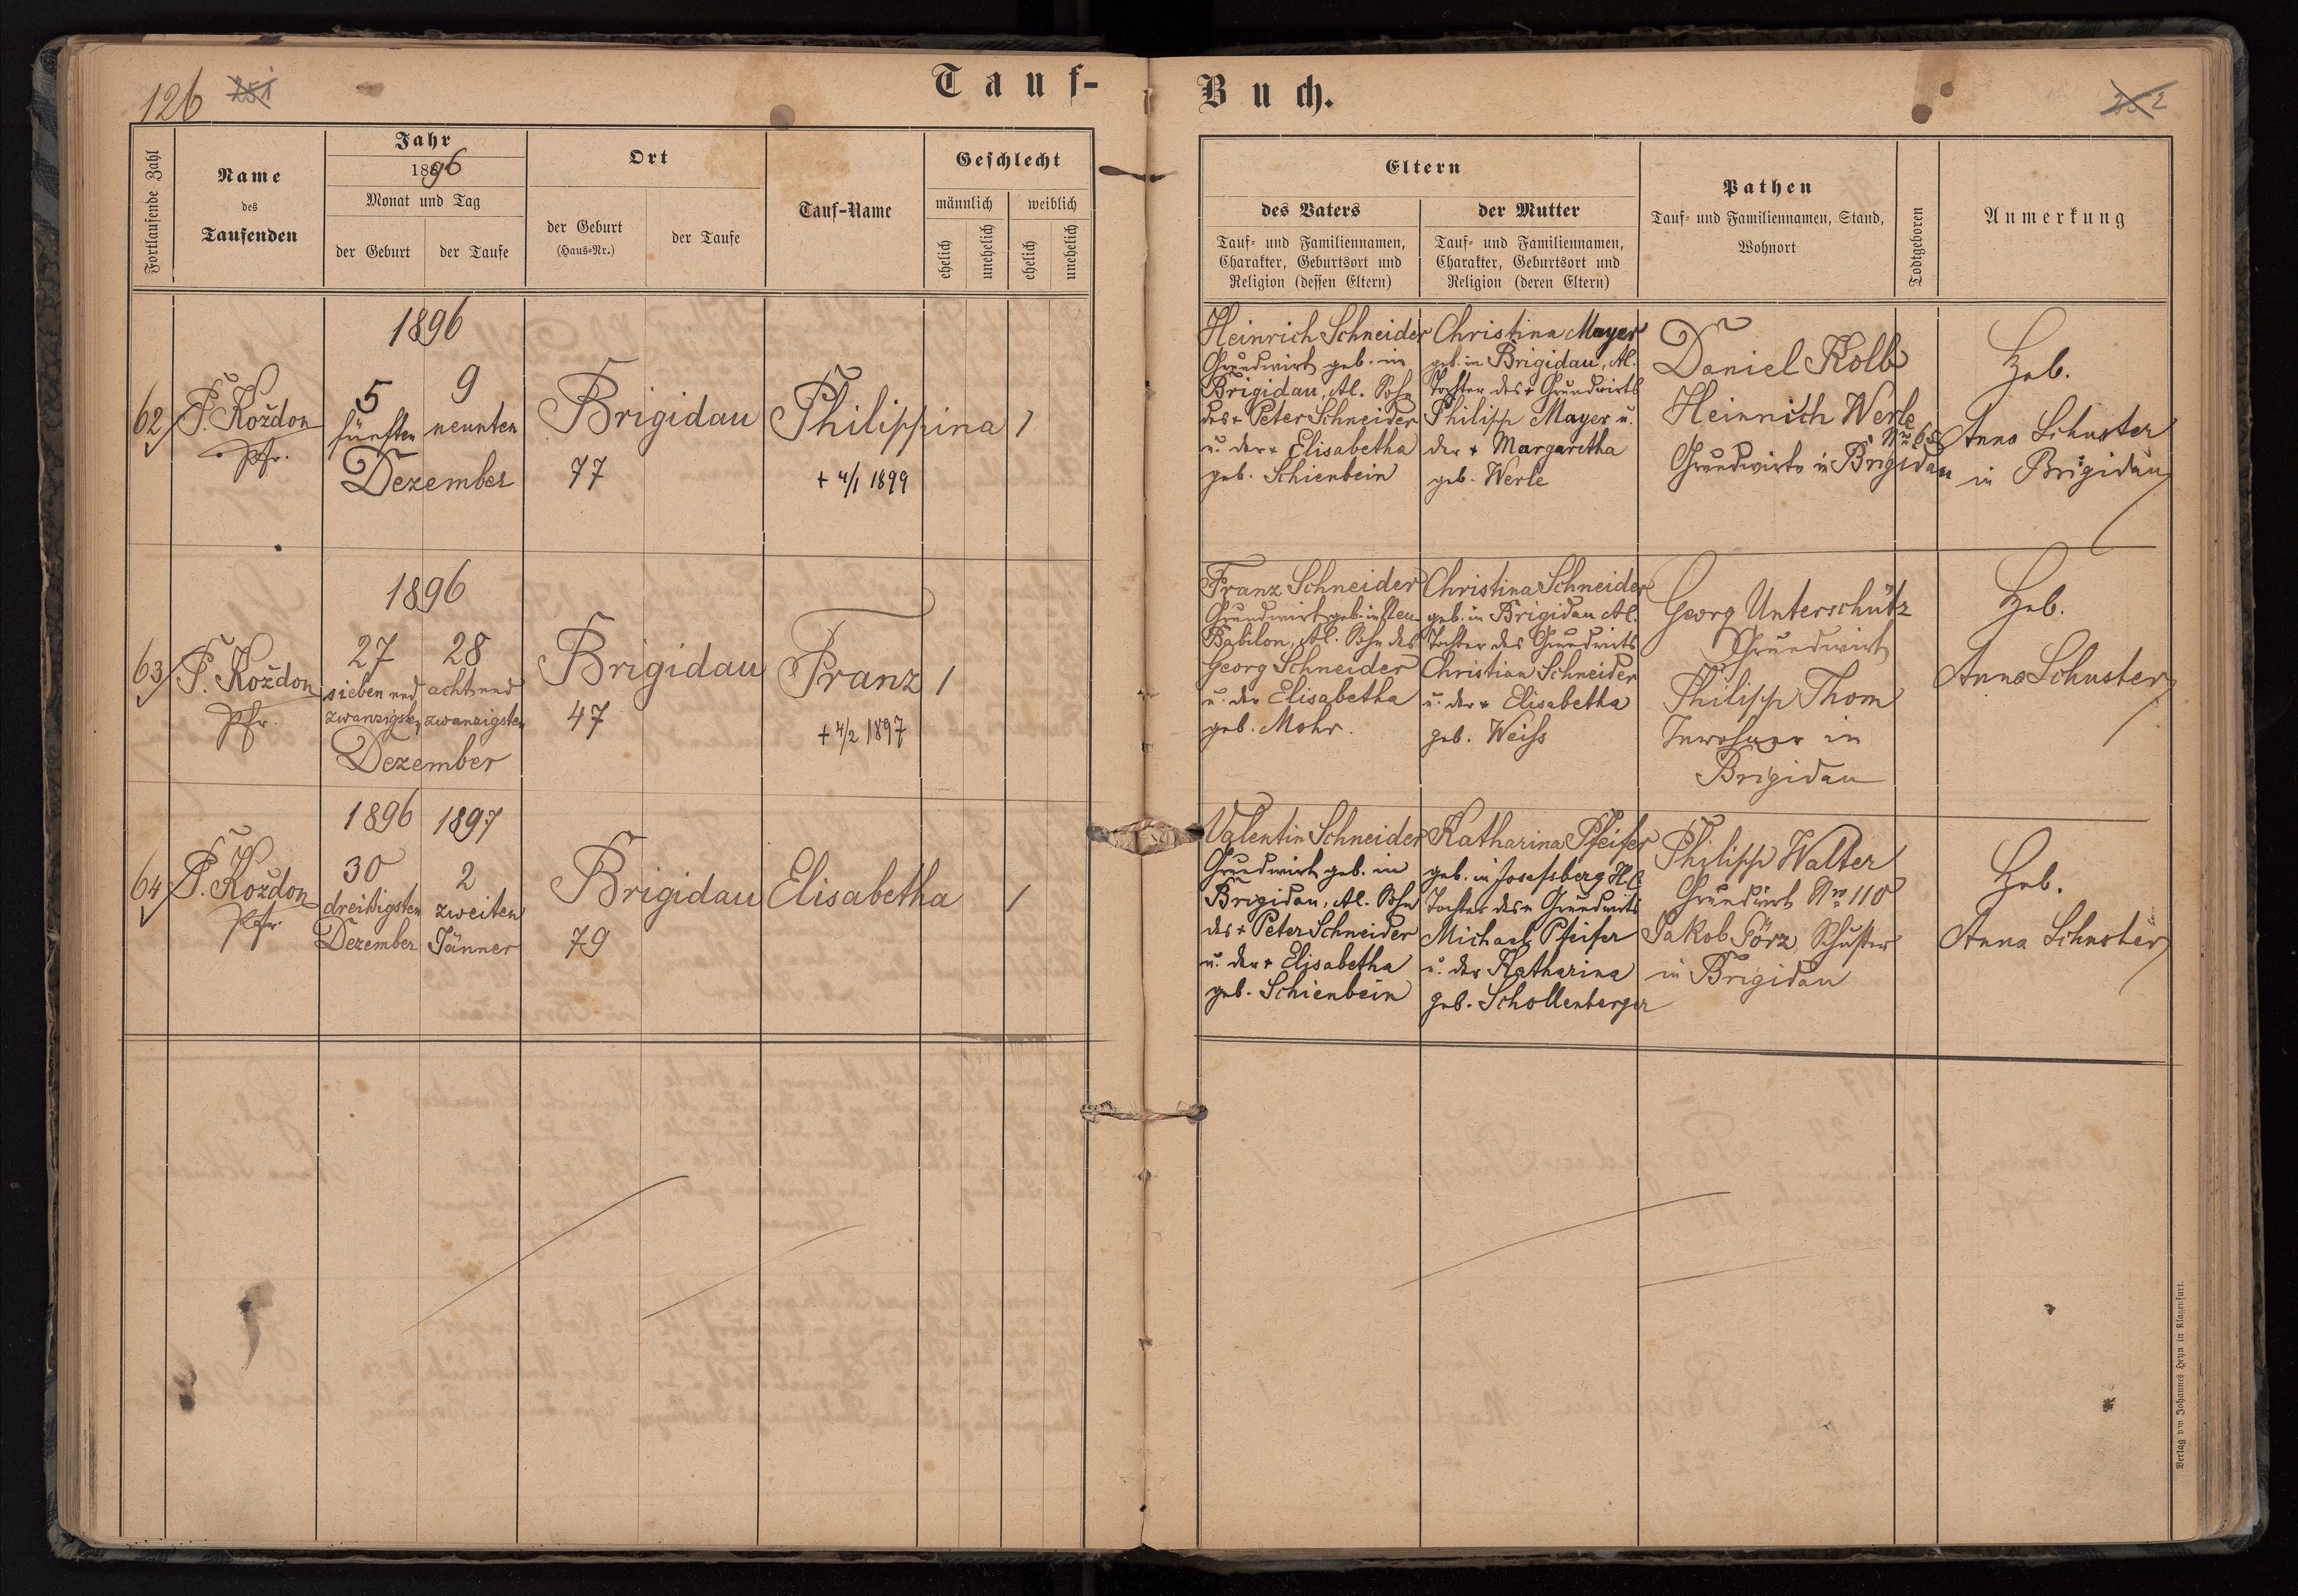 126 251
Tauf-
Buch.
252
Fortlaufende Zahl
Name
des
Taufenden
Jahr
1896
Monat und Tag
der Geburt
der Taufe
Ort
der Geburt
(Haus-Nr.)
der Taufe
Tauf-Name
Geschlecht
männlich
weiblich
ehelich
unehelich
ehelich
unehelich
Eltern
des Vaters
Tauf- und Familiennamen,
Charakter, Geburtsort und
Religion (dessen Eltern)
der Mutter
Tauf- und Familiennamen,
Charakter, Geburtsort und
Religion (deren Eltern)
Pathen
Tauf- und Familiennamen, Stand,
Wohnort
Todtgeboren
Anmerkung
62
P. Koždon
Pfr.
1896
5 9
fünften neunten
Dezember
Brigidau
77
Philippina
+ 4/1 1899
1
Heinrich Schneider
Grundwirt geb. in
Brigidau, Al. Sohn
des + Peter Schneider
u. der + Elisabetha
geb. Schienbein
Christina Mayer
geb. in Brigidau, Al.
Tochter des + Grundwirts
Philipp Mayer u.
der + Margaretha
geb. Werle
Daniel Kolb
Heinrich Werle
Nro 65
Grundwirte in Brigidau
Heb.
Anna Schuster
in Brigidau
63
P. Koždon
Pfr.
1896
27 28
sieben und acht und
zwanzigsten zwanzigsten
Dezember
Brigidau
47
Franz
+ 4/2 1897
1
Franz Schneider
Grundwirt geb. in Neu-
Babilon, Al. Sohn des
Georg Schneider
u. der Elisabetha
geb. Mohr.
Christina Schneider
geb. in Brigidau Al.
Tochter des Grundwirts
Christian Schneider
u. der + Elisabetha
geb. Weiss
Georg Unterschütz
Grundwirt
Philipp Thom
Inwohner in
Brigidau
Heb.
Anna Schuster
64
P. Koždon
Pfr.
1896 1897
30 2
dreißigsten zweiten
Dezember Jänner
Brigidau
79
Elisabetha
1
Valentin Schneider
Grundwirt geb. in
Brigidau, Al. Sohn
des + Peter Schneider
u. der + Elisabetha
geb. Schienbein
Katharina Pfeifer
geb. in Josefsberg H.C.
Tochter des + Grundwirts
Michael Pfeifer
u. der Katharina
geb. Schollenberger
Philipp Walter
Grundwirt Nro 110
Jakob Görz, Schuster
in Brigidau
Heb.
Anna Schuster
Verlag von Johannes Heyn in Klagenfurt.